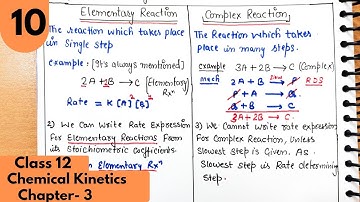 10
Elementary Reaction
The reaction which takes place in Single step
Example: [It's always mentioned]
2A + 1B → C (Elementary Rxn)
Rate = K [A]²[B]¹
2) We Can Write Rate Expression
For Elementary Reactions From
its Stoichiometric Coefficients
in Elementary Rxn
Complex Reaction
The Reaction which takes
place in many steps.
example 3A + 2B → C (Complex)
mech 2A + B → RDS
+ A →
+ B → C.
3A + 2B → C.
3) We Cannot write rate expression
For Complex Reaction, Unless
Slowest step is Given. As
Slowest step is Rate determining
Step.
Class 12
Chemical Kinetics
Chapter- 3